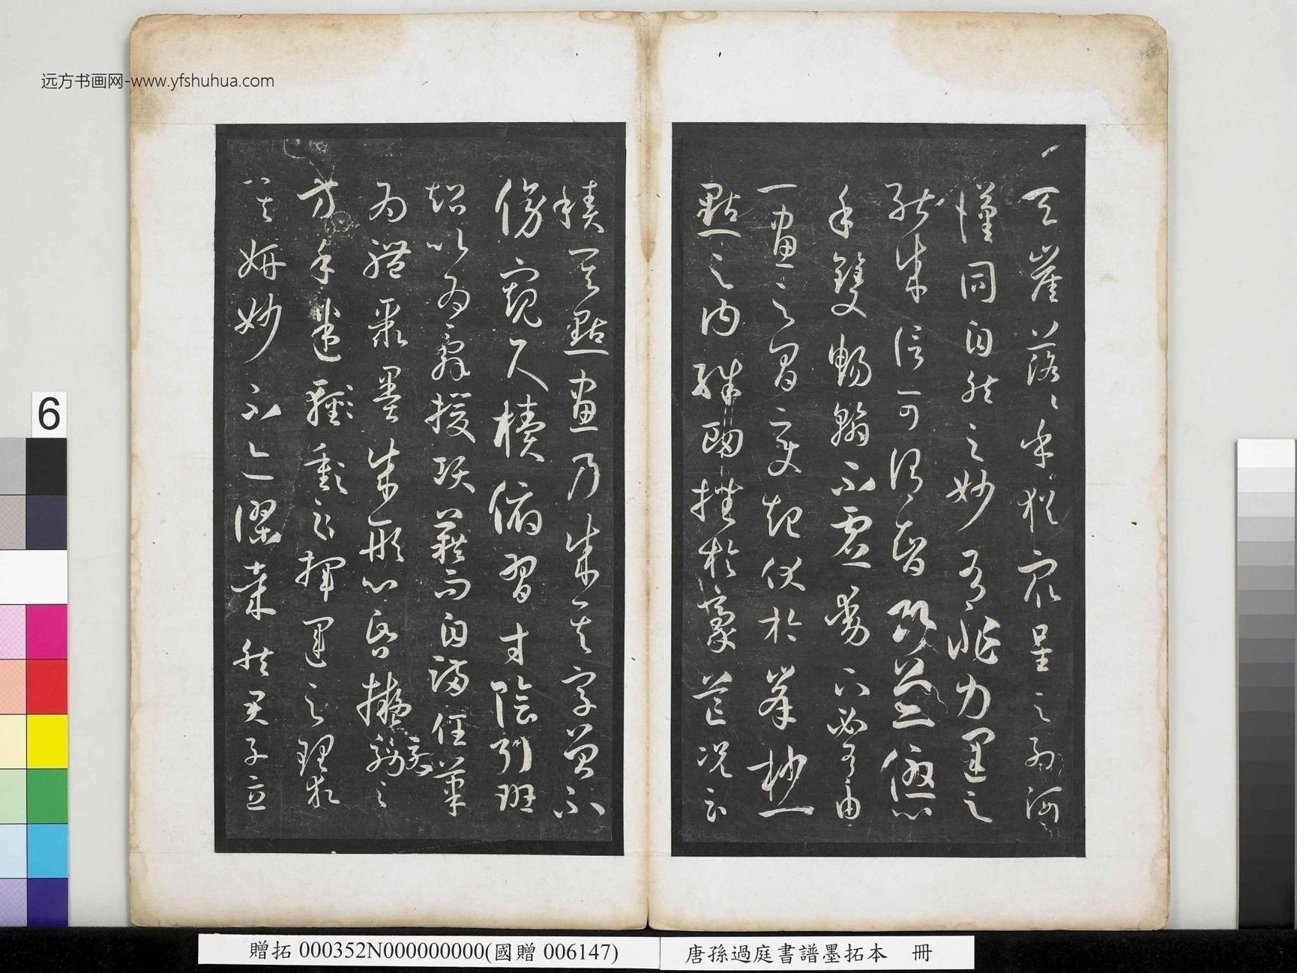 远方书画网-www.yfshuhua.com
天崖落〻乎猶眾星之列河
漢同自然之妙有非力運之
能成信可謂智巧兼優心
手雙暢翰不虛動下必有由
一畫之間變起伏於峯杪一
點之內殊衄挫於豪芒況云
積其點畫乃成其字曾不
傍窺尺牘俯習寸陰引班
超以為辭援項籍而自滿任筆
為體聚墨成形心昏擬效之
方手迷揮運之理求
其妍妙不亦謬哉然君子立
6
贈拓 000352N000000000(國贈 006147)
唐孫過庭書譜墨拓本 冊